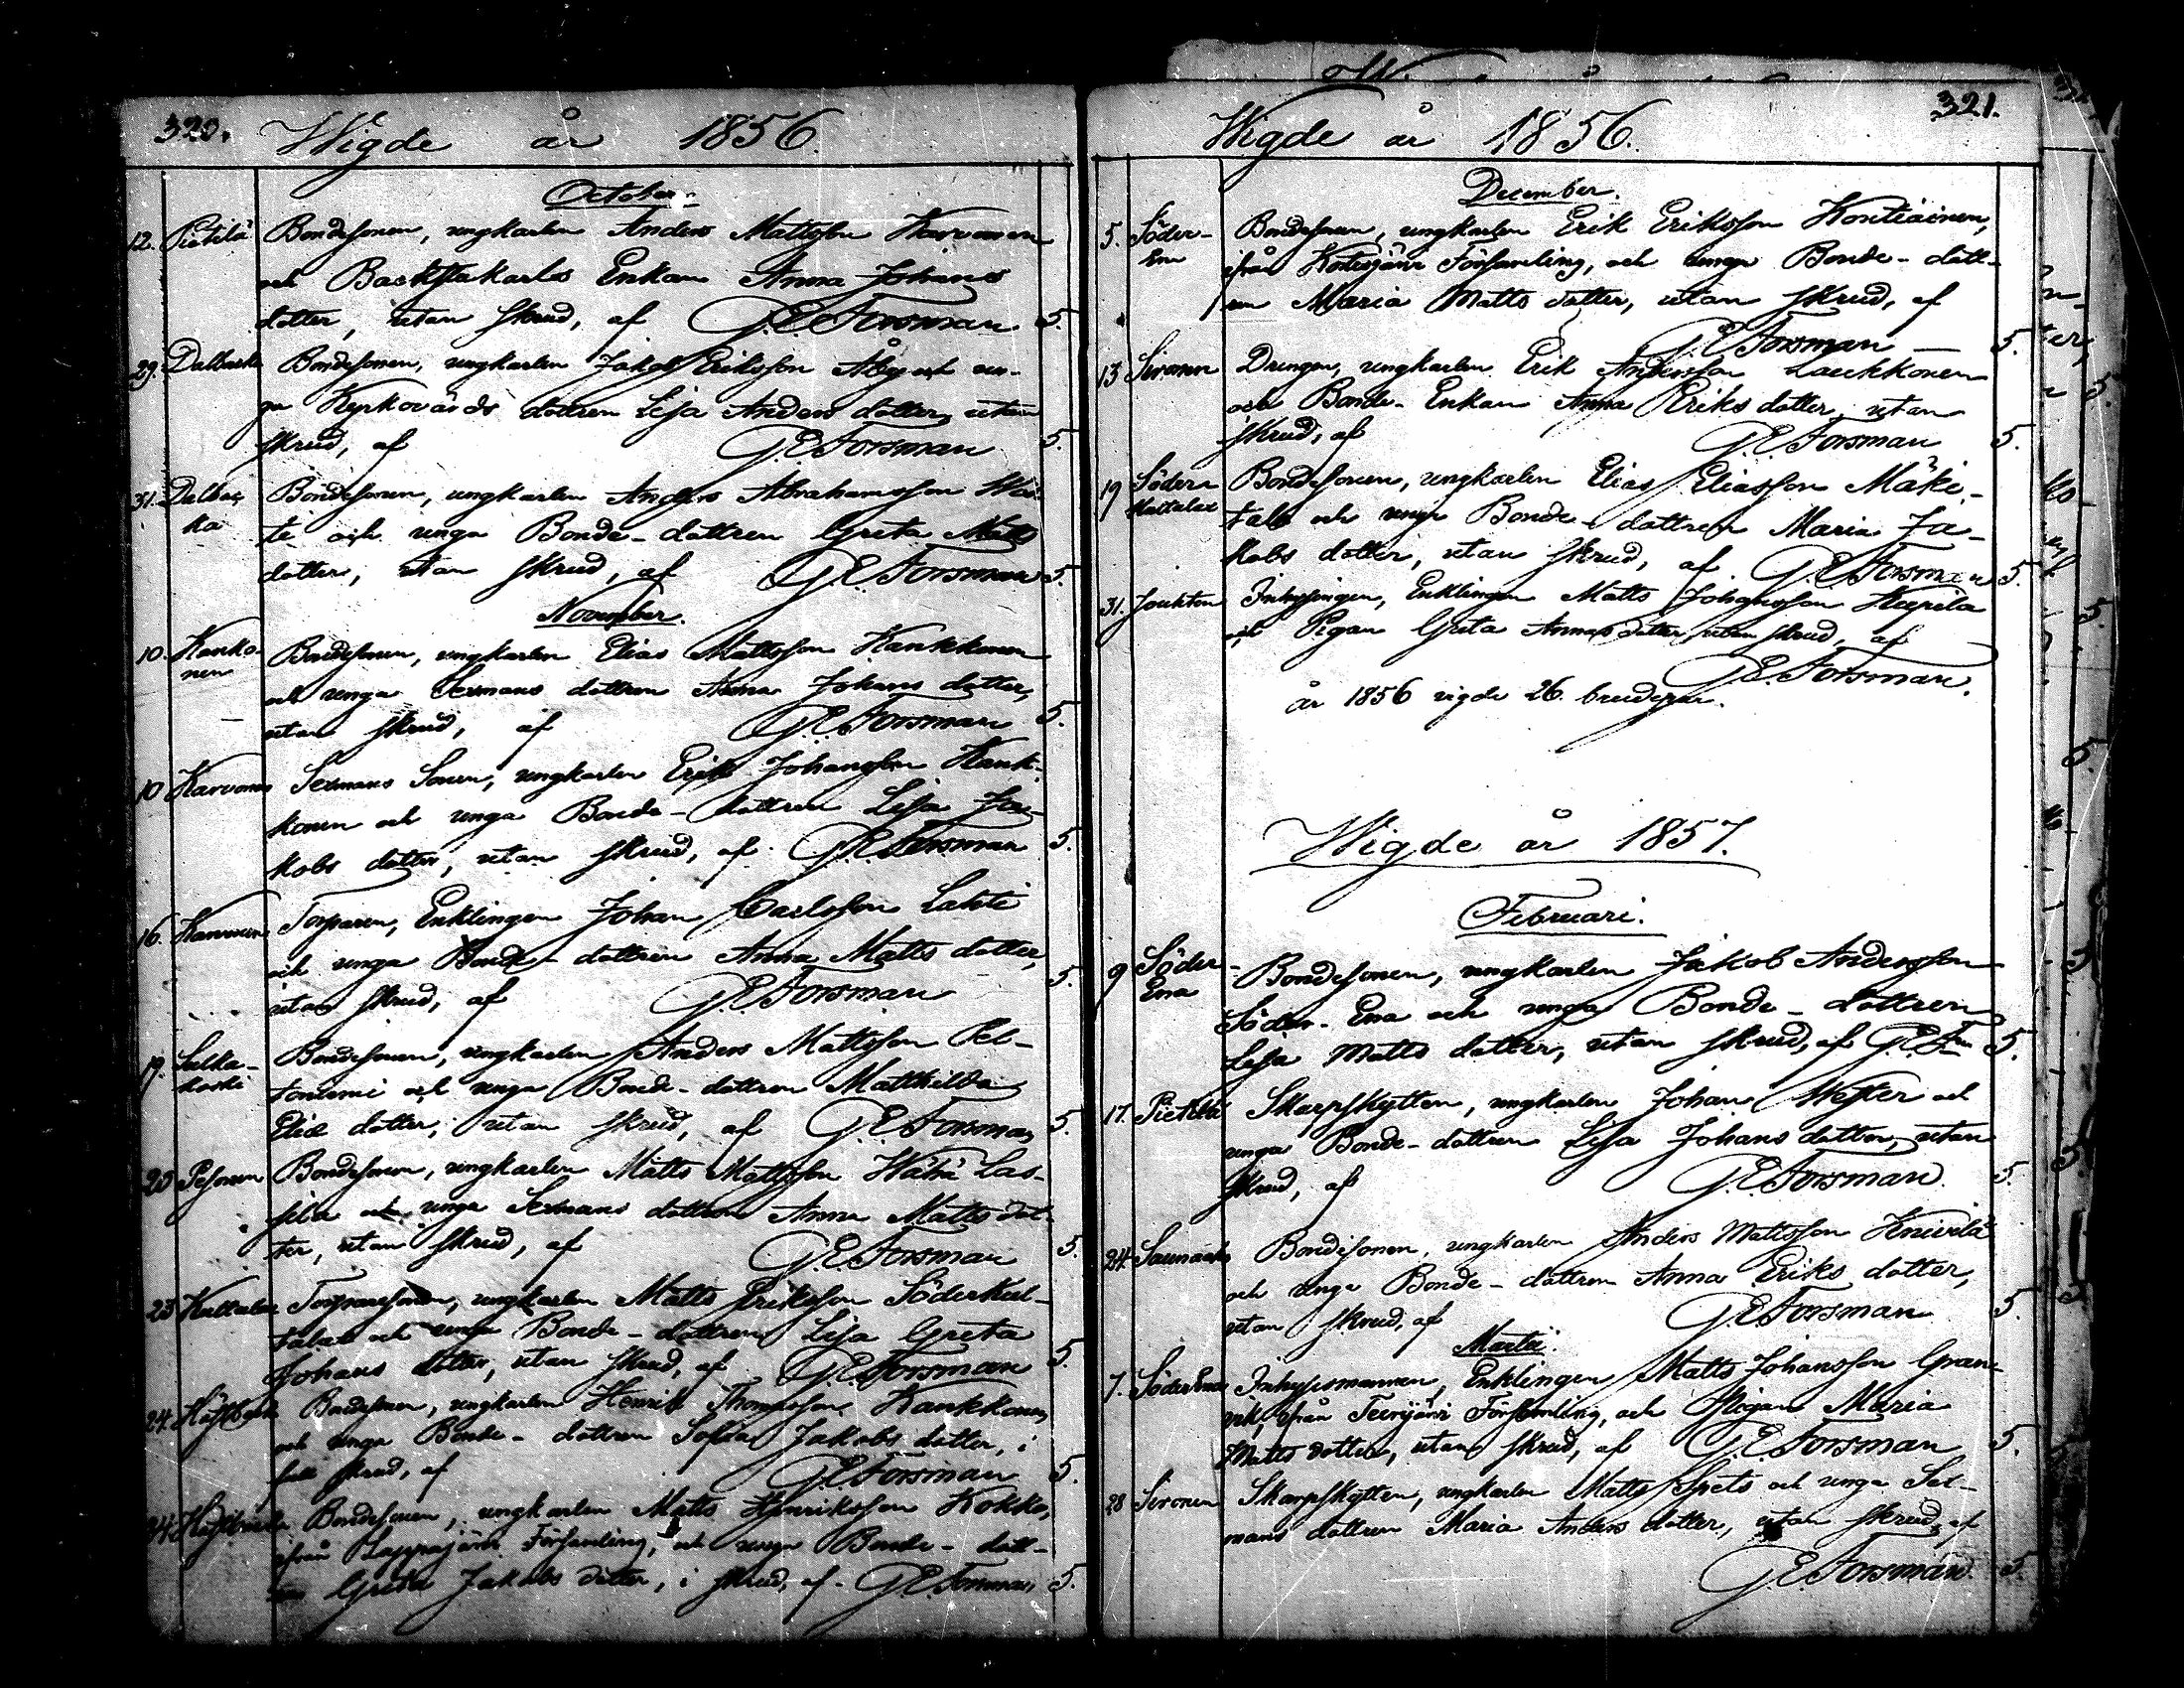 320.
Wigde år 1856.
October.
12. Pietilä Bondesonen, ungkarlen Anders Mattsson Karvonen
och Backstukarls Enkan Anna Johans
dotter, utan skrud, af G.E.Forsman 5.
29. Dalbacka Bondesonen, ungkarlen Jakob Eriksson Åby och un-
ga Kyrkovärds dottren Lisa Anders dotter, utan
skrud, af G.E.Forsman 5.
31. Dalbac- Bondesonen, ungkarlen Anders Abrahamsson
ka te och unga Bonde-dottren Greta Matts
dotter, utan skrud, af G.E.Forsman 5.
November.
10. Kanko- Bondesonen, ungkarlen Elias Mattsson Kankkonen
nen och unga Sexmans dottren Anna Johans dotter,
utan skrud, af G.E.Forsman 5.
10 Karvonen Sexmans Sonen, ungkarlen Erik Johansson Kank-
konen och unga Bonde-dottren Lisa Ja-
kobs dotter, utan skrud, af G.E.Forsman 5.
16. Torparen, Enklingen Johan Carlsson Lahti
och unga Bonde-dottren Anna Matts dotter,
utan skrud, af G.E.Forsman 5.
19. Salka- Bondesonen, ungkarlen Anders Mattsson Pel-
koski toniemi och unga Bonde-dottren Matthilda
Elias dotter, utan skrud, af G.E.Forsman 5.
20 Pesonen Bondesonen, ungkarlen Matts Mattsson Wähä Las-
sila och unga Sexmans dottren Anna Matts dot-
ter, utan skrud, af G.E.Forsman 5.
23 Kattalax Torparesonen, ungkarlen Matts Eriksson Söderkat-
talax och unga Bonde-dottren Lisa Greta
Johans dotter, utan skrud, af G.E.Forsman 5.
24. Bondesonen, ungkarlen Henrik Thomasson Kankkonen,
och unga Bonde-dottren Sofia Jakobs dotter, i
full skrud, af G.E.Forsman 5.
24. Bondesonen, ungkarlen Matts Henriksson Kokko,
ifrån Lappajärvi Församling, och unga Bonde-dott-
ren Greta Jakobs dotter, i skrud, af G.E.Forsman 5.
321.
Wigde år 1856.
December.
5. Söder- Bondesonen, ungkarlen Erik Eriksson Kontiainen,
Ena ifrån Kortesjärvi Församling, och unga Bonde-dott-
ren Maria Matts dotter, utan skrud, af
G.E.Forsman 5.
13 Sironen Drengen, ungkarlen Erik Andersson Laukkonen
och Bonde-Enkan Anna Eriks dotter, utan
skrud, af G.E.Forsman 5.
19 Söder- Bondesonen, ungkarlen Elias Eliasson Mäki-
Kattalax talo och unga Bonde-dottren Maria Ja-
kobs dotter, utan skrud, af G.E.Forsman 5.
31. Jouhten Inhysingen, Enklingen Matts Johansson Kaupila
och Pigan Greta Annas dotter, utan skrud, af
G.E.Forsman.
år 1856 vigde 26. brudepar.
Wigde år 1857.
Februari.
9 Söder- Bondesonen, ungkarlen Jakob Andersson
Ena Söder-Ena och unga Bonde-dottren
Lisa Matts dotter, utan skrud, af G.E.Fn 5.
17. Pietilä Skarpskytten, ungkarlen Johan Wester och
unga Bonde-dottren Lisa Johans dotter, utan
skrud, af G.E.Forsman. 5.
24. Bondesonen, ungkarlen Anders Mattsson Knivilä
och unga Bonde-dottren Anna Eriks dotter,
utan skrud, af G.E.Forsman 5
Martii.
7. Söder Ena Inhysesmannen, Enklingen Matts Johansson Gran-
vik, ifrån Teerijärvi Församling, och Pigan Maria
Matts dotter, utan skrud, af G.E.Forsman 5.
28 Sironen Skarpskytten, ungkarlen Matts Spets och unga Sex-
mans dottren Maria Anders dotter, utan skrud, af
G.E.Forsman 5.